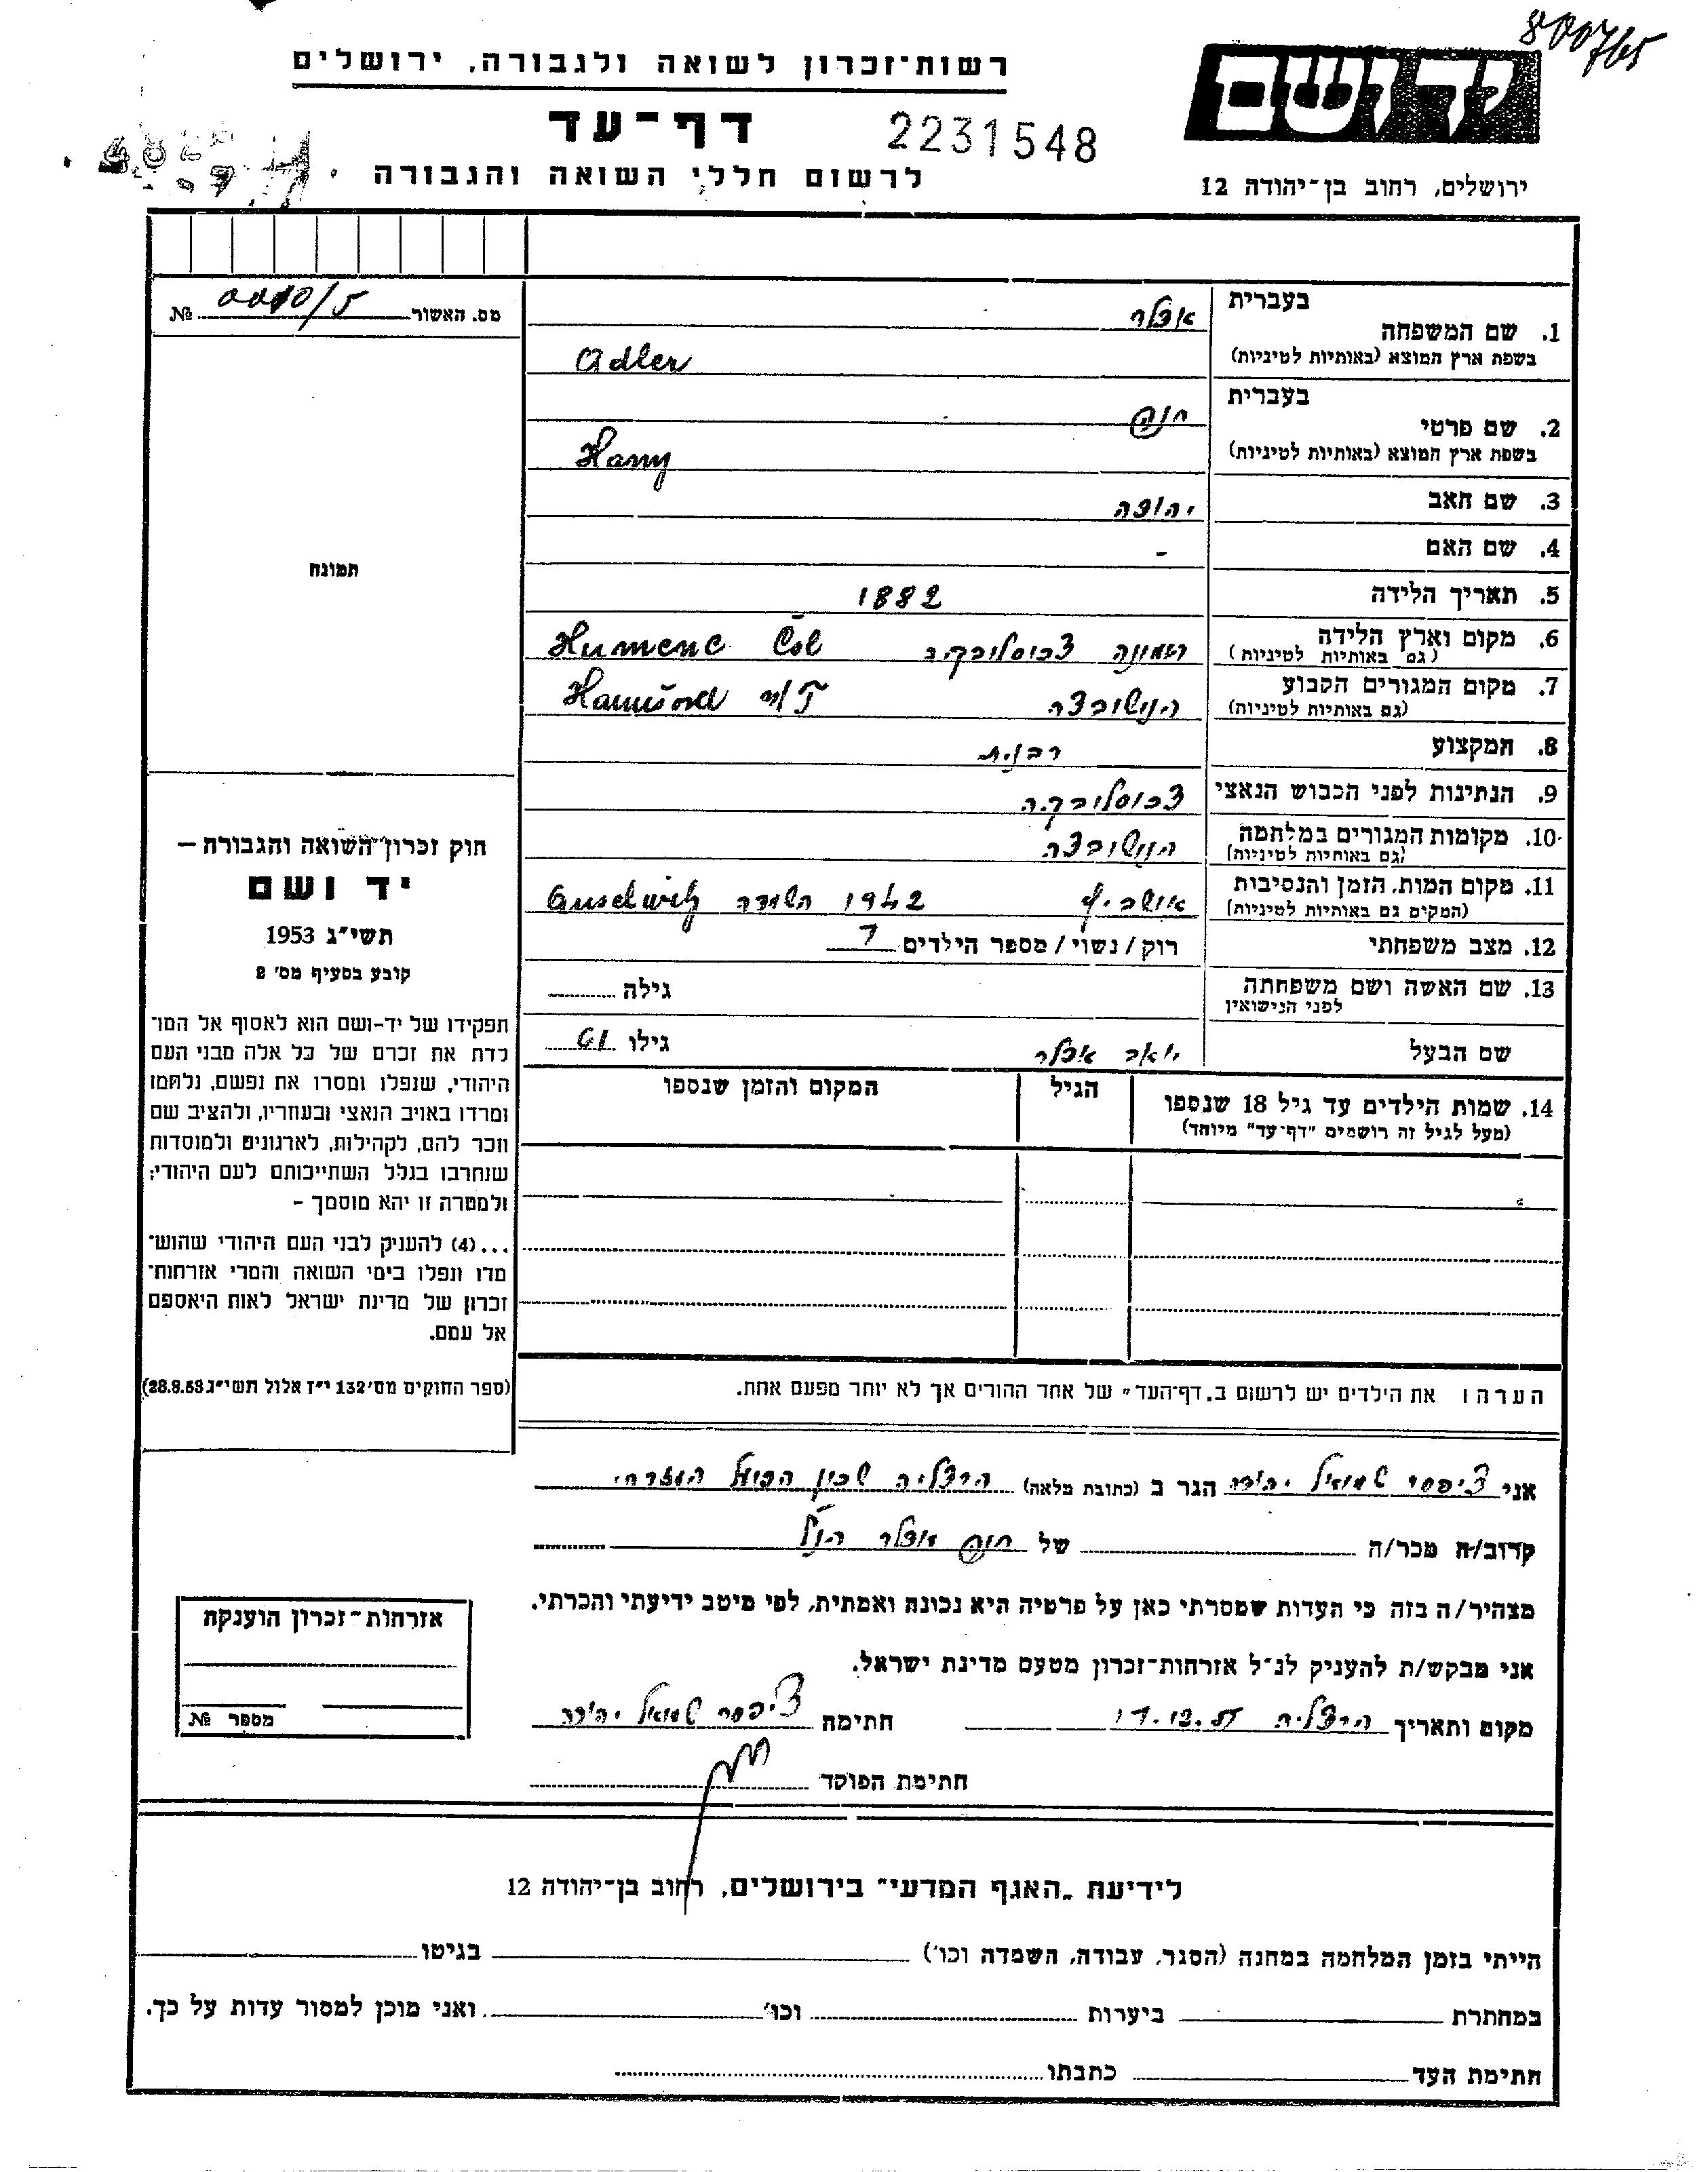 800765
רשות־זכרון לשואה ולגבורה, ירושלים
יד ושם
דף־עד
2231548
לרשום חללי השואה והגבורה
ירושלים, רחוב בן־יהודה 12
מס. האשור № 
בעברית
1. שם המשפחה אדלר
בשפת ארץ המוצא (באותיות לטיניות) Adler
בעברית
2. שם פרטי חנה
בשפת ארץ המוצא (באותיות לטיניות) Hany
3. שם האב יהודה
4. שם האם -
5. תאריך הלידה 1882
6. מקום וארץ הלידה הומנה צכוסלובקיה Humene Čsl
(גם באותיות לטיניות)
7. מקום המגורים הקבוע הנושובצה Hanušovce n/T
(גם באותיות לטיניות)
8. המקצוע רבנית
9. הנתינות לפני הכבוש הנאצי צכוסלובקיה
10. מקומות המגורים במלחמה הנושובצה
(גם באותיות לטיניות)
11. מקום המות, הזמן והנסיבות אושביץ 1942 השמדה Auschwitz
(המקום גם באותיות לטיניות)
12. מצב משפחתי רוק/נשוי/מספר הילדים 7
13. שם האשה ושם משפחתה גילה
לפני הנישואין
שם הבעל יואב אדלר גילו 61
14. שמות הילדים עד גיל 18 שנספו הגיל המקום והזמן שנספו
(מעל לגיל זה רושמים "דף־עד" מיוחד)
הערה: את הילדים יש לרשום ב„דף־העד" של אחד ההורים אך לא יותר מפעם אחת.
תמונה
חוק זכרון השואה והגבורה –
יד ושם
תשי"ג 1953
קובע בסעיף מס' 2
תפקידו של יד־ושם הוא לאסוף אל המו־
לדת את זכרם של כל אלה מבני העם
היהודי, שנפלו ומסרו את נפשם, נלחמו
ומרדו באויב הנאצי ובעוזריו, ולהציב שם
וזכר להם, לקהילות, לארגונים ולמוסדות
שנחרבו בגלל השתייכותם לעם היהודי;
ולמטרה זו יהא מוסמך –
...(4) להעניק לבני העם היהודי שהוש־
מדו ונפלו בימי השואה והמרי אזרחות־
זכרון של מדינת ישראל לאות היאספם
אל עמם.
(ספר החוקים מס' 132 י"ז אלול תשי"ג 28.8.53)
אני ציפסר שמואל יהודה הגר ב (כתובת מלאה) הרצליה שכון הפועל המזרחי
קרוב/ה מכר/ה של חנה אדלר הנ"ל
מצהיר/ה בזה כי העדות שמסרתי כאן על פרטיה היא נכונה ואמתית, לפי מיטב ידיעתי והכרתי.
אני מבקש/ת להעניק לנ"ל אזרחות־זכרון מטעם מדינת ישראל.
מקום ותאריך הרצליה חתימה ציפסר שמואל יהודה
חתימת הפוקד
אזרחות־זכרון הוענקה
מספר №
לידיעת „האגף המדעי" בירושלים, רחוב בן־יהודה 12
הייתי בזמן המלחמה במחנה (הסגר, עבודה, השמדה וכו') בגיטו
במחתרת ביערות וכו' ואני מוכן למסור עדות על כך.
חתימת העד כתבתו